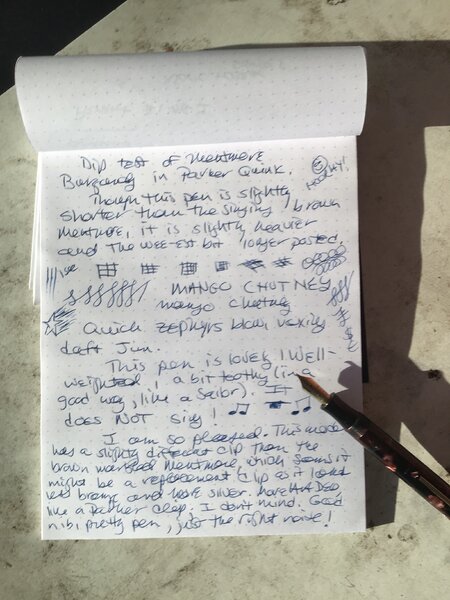 Dip test of Mentmore
Burgandy in Parker Quink.
HOORAY!
Though this pen is slightly
shorter than the singing, brown
mentmore, it is slightly heavier
and the wee-est bit longer posted.
MANGO CHUTNEY
mango chutney
Quick zephyrs blow, vexing
daft Jim.
This pen is lovely! Well-
weighted, a bit toothy (in a
good way, like a Sailor). It
does NOT sing!
I am so pleased. This model
has a slightly different clip than the
brown marbled Mentmore, which seems it
might be a replacement clip as it looks
less bronze and more silver.
like a Parker clip. I don't mind. Good
nib, pretty pen, just the right noise!